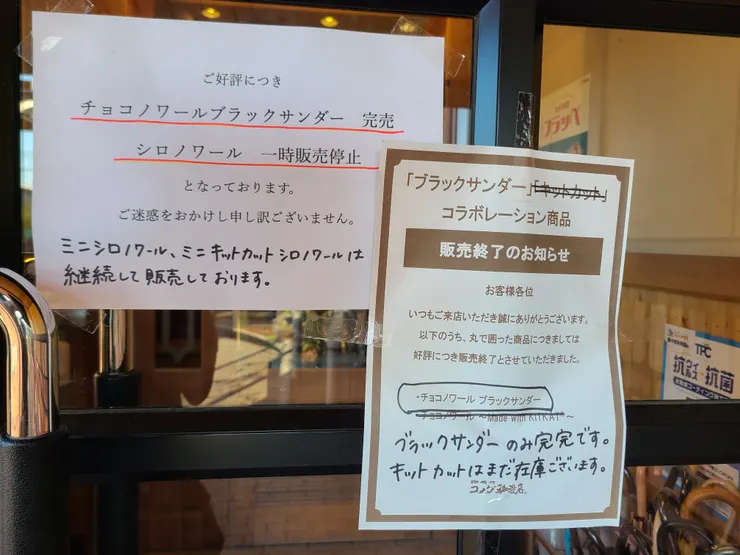 ご好評につき
チョコノワールブラックサンダー 完売
シロノワール 一時販売停止
となっております。
ご迷惑をおかけし申し訳ございません。
ミニシロノワール、ミニキットカットシロノワールは
継続して販売しております。
「ブラックサンダー」「キットカット」
コラボレーション商品
販売終了のお知らせ
お客様各位
いつもご来店いただき誠にありがとうございます。
以下のうち、丸で囲った商品につきましては
好評につき販売終了とさせていただきました。
・チョコノワール ブラックサンダー
・チョコノワール ～Made with KITKAT～
ブラックサンダーのみ完売です。
キットカットはまだ在庫ございます。
コメダ珈琲店
フラッペ
TPC
抗ウイルス・抗菌